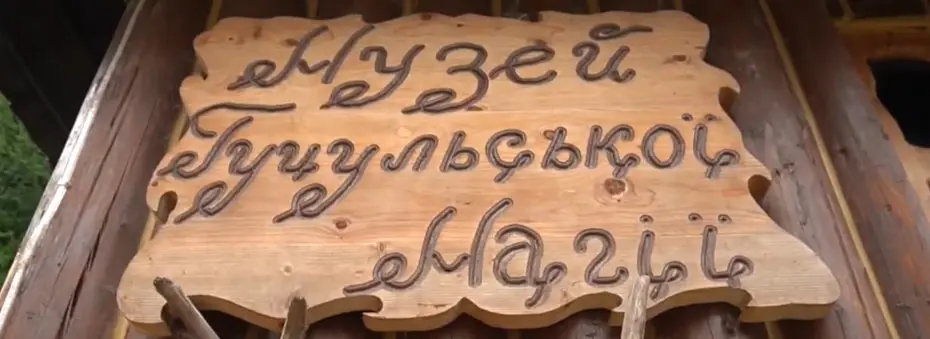 Музей
Гуцульської
Магії